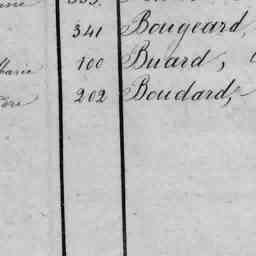 341 Bougeard,
100 Buard,
202 Boudard,